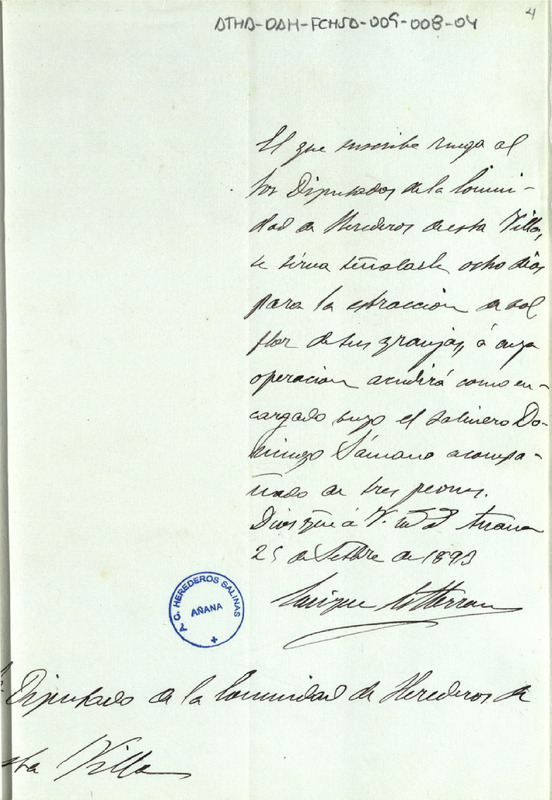 4
ATHA-DAH-FCHSA-009-008-04
El que suscribe ruega al
Sor Diputados de la Comuni-
dad de Herederos de esta Villa,
se sirva señalarle ocho dias
para la estraccion de sal
flor de sus granjas, á cuya
operacion acudirá como en-
cargado suyo el salinero Do-
mingo Sámano acompa-
ñado de tres peones.
Dios gue á V. Añana
25 de Setbre de 1893
Enrique
C. HEREDEROS SALINAS
AÑANA
Diputado de la Comunidad de Herederos de
sta Villa